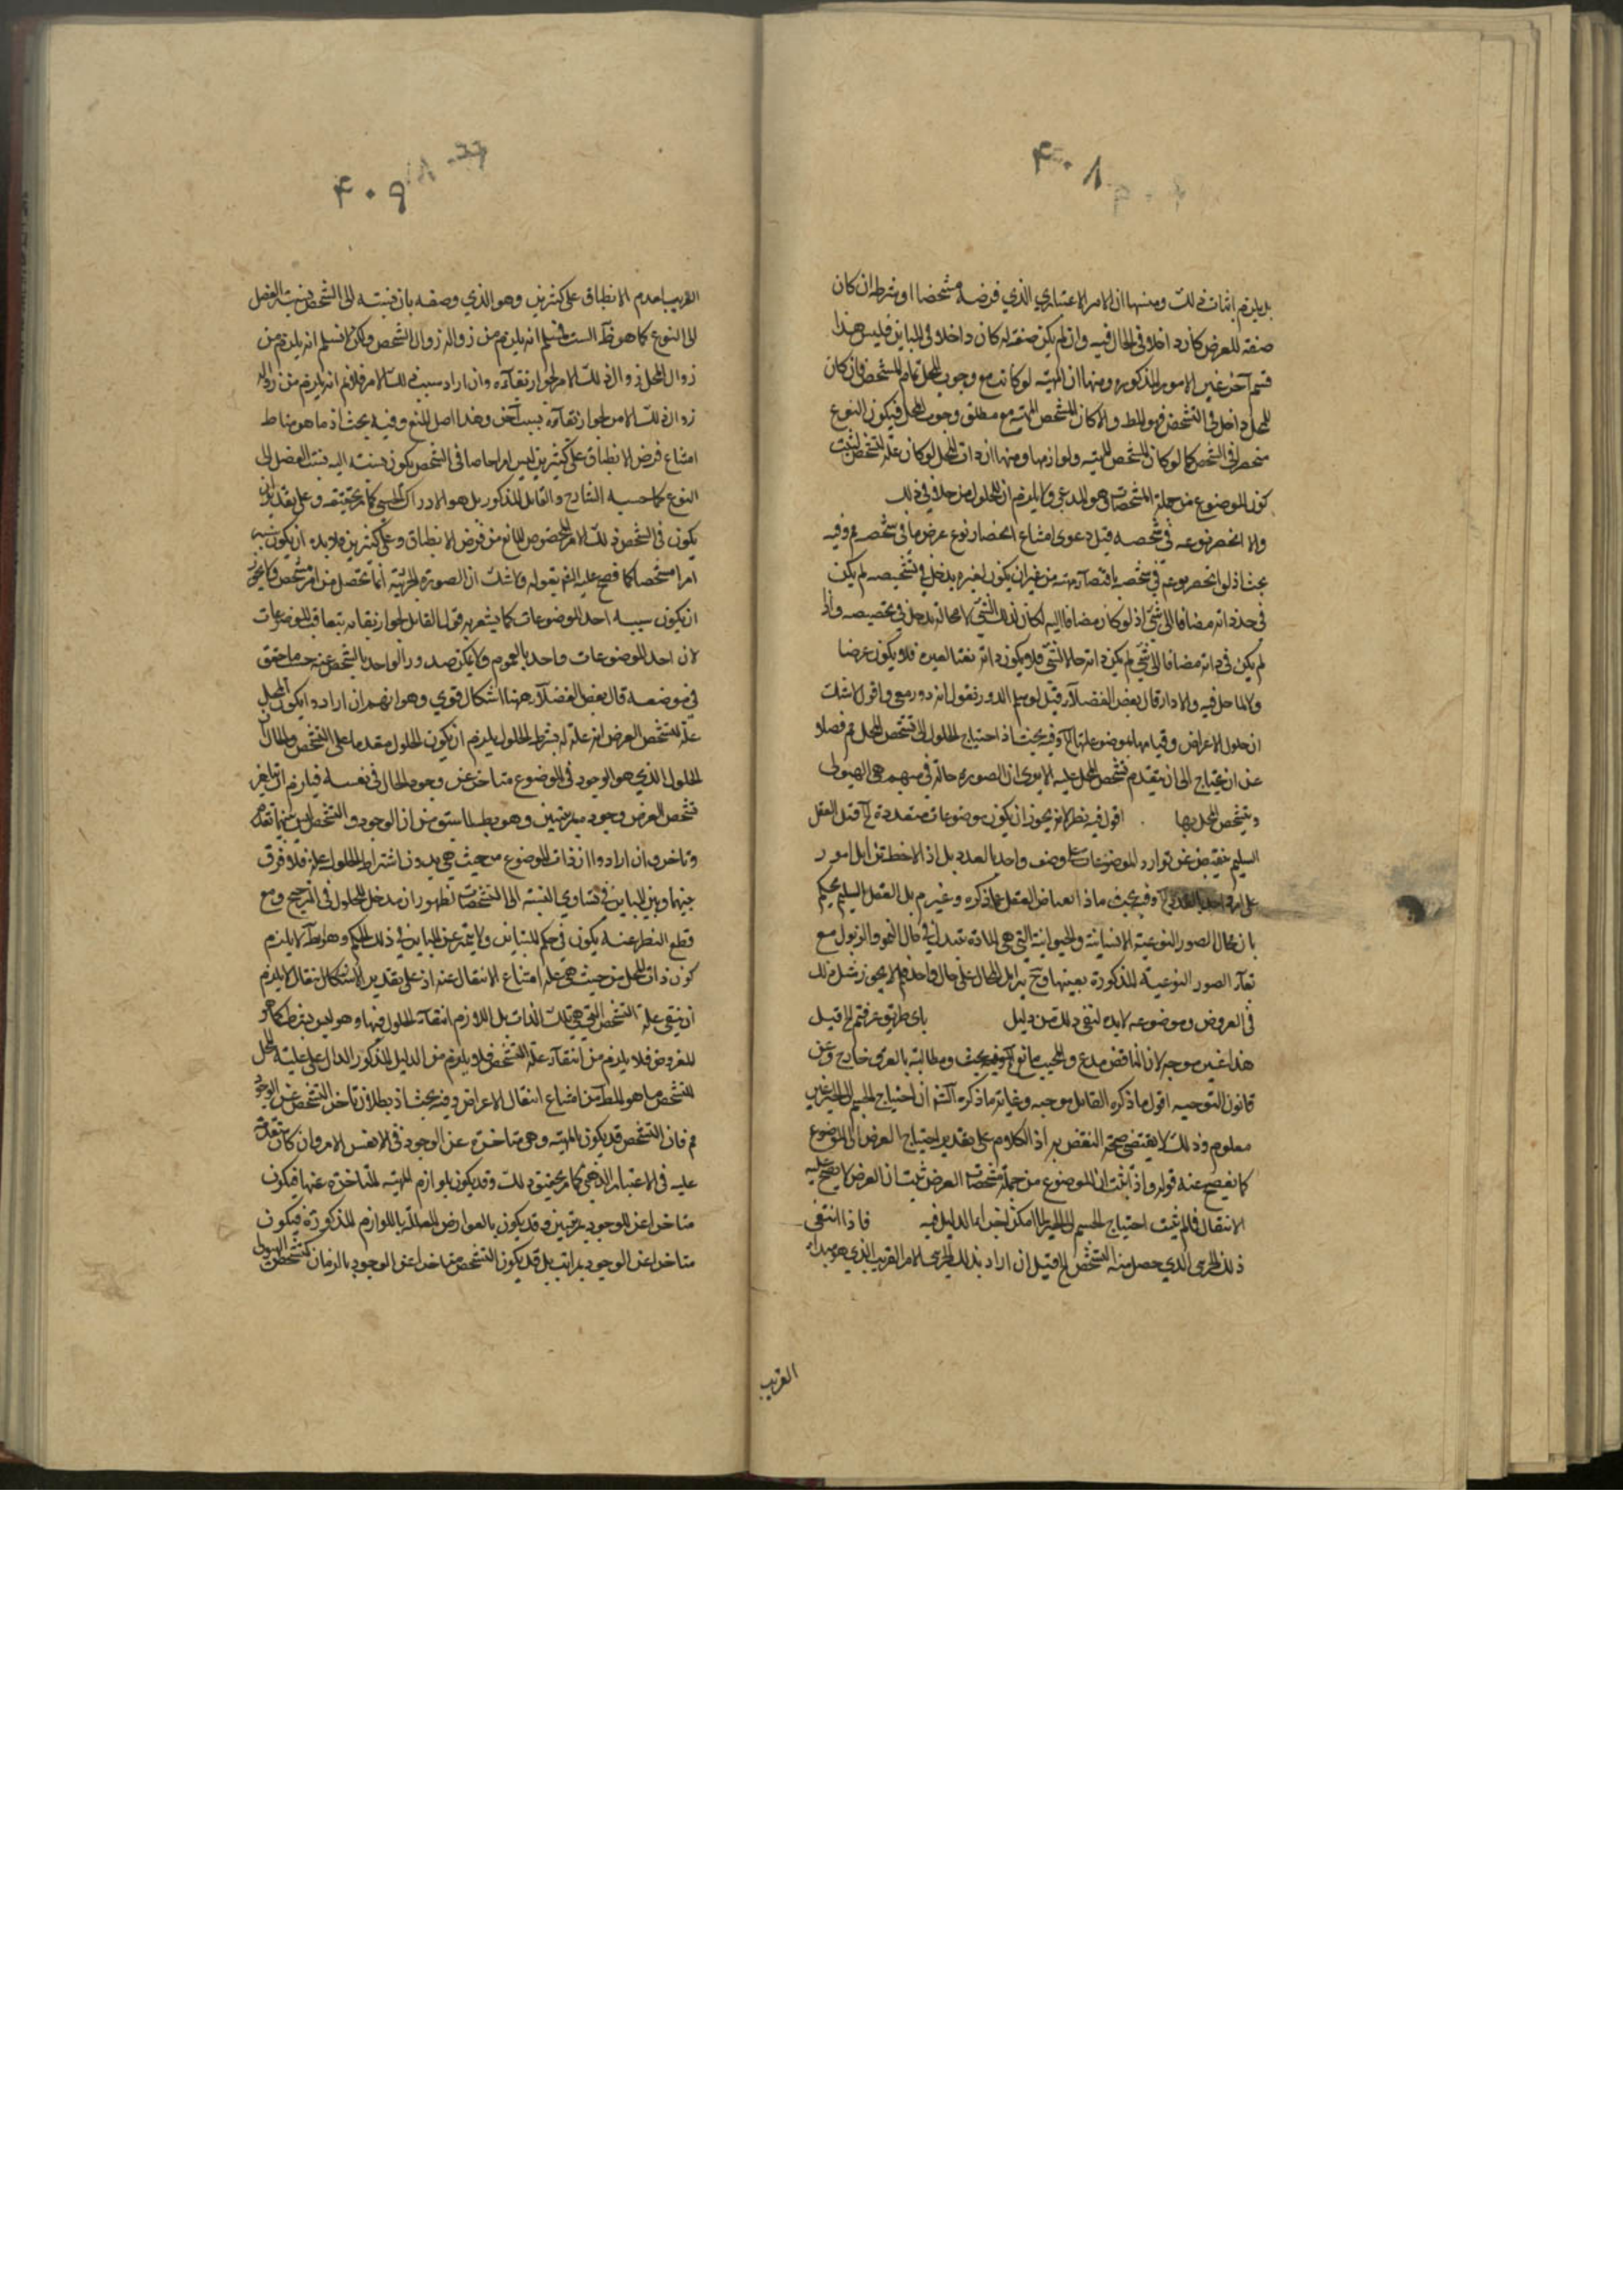 ۴۰۸
بل يلزم اثبات ذلك ومنها ان الامر الاعتباري الذي فرضه مشخصا او بشرط ان كان
صفة للعرض كان داخلا في الحال فيه وان لم يكن صفة له كان داخلا في المباين فليس هذا
قسم آخر غير الامور المذكورة ومنها ان المهية لو كانت مع وجوب المحل تمام المشخص فان كان
المحل داخل في التشخص فهو المط والا كان المشخص المهية مع مطلق وجوب المحل فيكون النوع
منحصرا في الشخص كما لو كان المشخص المهية ولوازمها ومنها ان ذات المحل لو كان علة التشخص لثبت
كون الموضوع من جملة المشخصات وهو المدعى ولا يلزم ان للحلول مدخلا في ذلك
والا انحصر نوعه في شخصه قيل دعوى امتناع انحصار نوع عرض ما في شخصه م وفيه
بحث اذ لو انحصر نوعه في شخصه باقتضاء مهيته من غير ان يكون لغيره مدخل في تشخصه لم يكن
في حد ذاته مضافا الى شئ اذ لو كان مضافا اليه لكان لذلك الشئ لا محالة مدخل في تخصيصه واذا
لم يكن في ذاته مضافا الى شئ لم يكن ذاته حالا لشئ فلا يكون ذاته نعتا لغيره فلا يكون عرضا
ولا لما حل فيه والا دار قال بعض الفضلاء قيل لو سلم الدور نقول انه دور معي واقول لا شك
ان حلول الاعراض وقيامها بموضوعاتها آه وفيه بحث اذ احتياج الحلول الى تشخص المحل م فضلا
عن ان يحتاج الى ان يتقدم تشخص المحل عليه الا يرى ان الصورة حالة في مبهم هي الهيولى
ويتشخص المحل بها . اقول فيه نظر لانه يجوز ان يكون موضوعات متعددة آه قيل العقل
السليم ينقبض عن توارد الموضوعات على وصف واحد بالعدد بل اذا لاحظ تزايل امور
على امر واحد بالعدد آه وفيه بحث ماذا انقباض العقل مما ذكره وغيره م بل العقل السليم يحكم
بان محال الصور النوعية الانسانية والحيوانية التي هي المادة تتبدل في حال النمو والذبول مع
بقاء الصور النوعية المذكورة بعينها وح تزايل المحال على حال واحد فلم لا يجوز مثل ذلك
في العروض وموضوعه لا بد لنفي ذلك من دليل باي طريق عرفتم الخ قيل
هذا غير موجه لان الناقض مدع والمجيب مانع آه وفيه بحث ومطالبته بالعرف خارج عن
قانون التوجيه اقول ما ذكره القائل موجه وغاية ما ذكره آه ان احتياج الجسم الى الحيز غير
معلوم وذلك لا يقتضي صحة النقض به اذ الكلام على تقدير احتياج العرض الى الموضوع
كما يفصح عنه قوله واذا ثبت ان الموضوع من جملة مشخصات العرض ثبت ان العرض لا يصح عليه
الانتقال فلم ثبت احتياج الجسم الى الحيز لما امكن اجراء الدليل فيه فاذا انتفى
ذلك الجزئي الذي حصل منه التشخص الخ قيل ان اراد بذلك الجزئي الامر القريب الذي هو مبداء
القريب
۴۰۹
القريب لعدم الانطباق على كثيرين وهو الذي وصفه بان نسبته الى الشخص نسبة الفصل
الى النوع كما هو ظ السياق فنسلم انه يلزم من زواله زوال الشخص ولكن لا نسلم انه يلزم من
زوال المحل زوال ذلك الامر لجواز بقاءه وان اراد سبب ذلك الامر فلا نم انه يلزم من زواله
زوال ذلك الامر لجواز بقاءه بسبب آخر وهذا اصل المنع وفيه بحث اذ ما هو مناط
امتناع فرض الانطباق على كثيرين ليس امرا خاصا في الشخص يكون نسبته اليه نسبة الفصل الى
النوع كما حسبه الشارح والقائل المذكور بل هو الادراك الحسي كما مر تحقيقه وعلى تقدير ان
يكون في الشخص ذلك الامر المخصوص المانع من فرض الانطباق على كثيرين فلا بد ان يكون سببه
امرا مشخصا كما افصح عليه الشم بقوله ولا شك ان الصورة الجزئية انما تحصل من امر مشخص فلا يجوز
ان يكون سببه احد الموضوعات كما يشعر به قول القائل لجواز بقائه بتعاقب الموضوعات
لان احد الموضوعات واحد بالعموم ولا يمكن صدور الواحد بالشخص عنه حسب ما حقق
في موضعه قال بعض الفضلاء ههنا اشكال قوي وهو انهم ان ارادوا بكون المحل
علة لتشخص العرض انه علة له بشرط الحلول يلزم ان يكون الحلول مقدما على التشخص والحال ان
الحلول الذي هو الوجود في الموضوع متاخر عن وجود الحال في نفسه فيلزم ان يتاخر
تشخص العرض عن وجوده بمرتبتين وهو بط لما سبق من ان الوجود والتشخص ليس بينهما تقدم
وتاخر وان ارادوا ان ذات الموضوع من حيث هي بدون اشتراط الحلول علة فلا فرق
بينها وبين المباين في تساوي النسبة الى التشخصات لظهور ان مدخل الحلول في الترجيح ومع
قطع النظر عنه يكون في حكم المباين ولا يتميز عن المباين في ذلك الحكم وهو ظ لا يلزم
كون ذات المحل من حيث هي علة امتناع الانتقال عنه اذ على تقدير الانتقال لا يلزم
ان ينتفي علة التشخص التي هي تلك الذات بل اللازم انتفاء الحلول فيها وهو ليس بشرط كما هو
المفروض فلا يلزم من انتفاءه انتفاء علة التشخص فلا يلزم من الدليل المذكور الدال على علية المحل
للتشخص ما هو المط من امتناع انتقال الاعراض وفيه بحث اذ بطلان تاخر التشخص عن الوجود
م فان التشخص قد يكون بالمهية وهي متاخرة عن الوجود في نفس الامر وان كان متقدمة
عليه في الاعتبار الذهني كما مر تحقيق ذلك وقد يكون بلوازم المهية المتاخرة عنها فيكون
متاخرا عن الوجود بمرتبتين وقد يكون بالعوارض المعللة باللوازم المذكورة فيكون
متاخرا عن الوجود بمراتب بل قد يكون التشخص متاخرا عن الوجود بالزمان كتشخص الهيولى